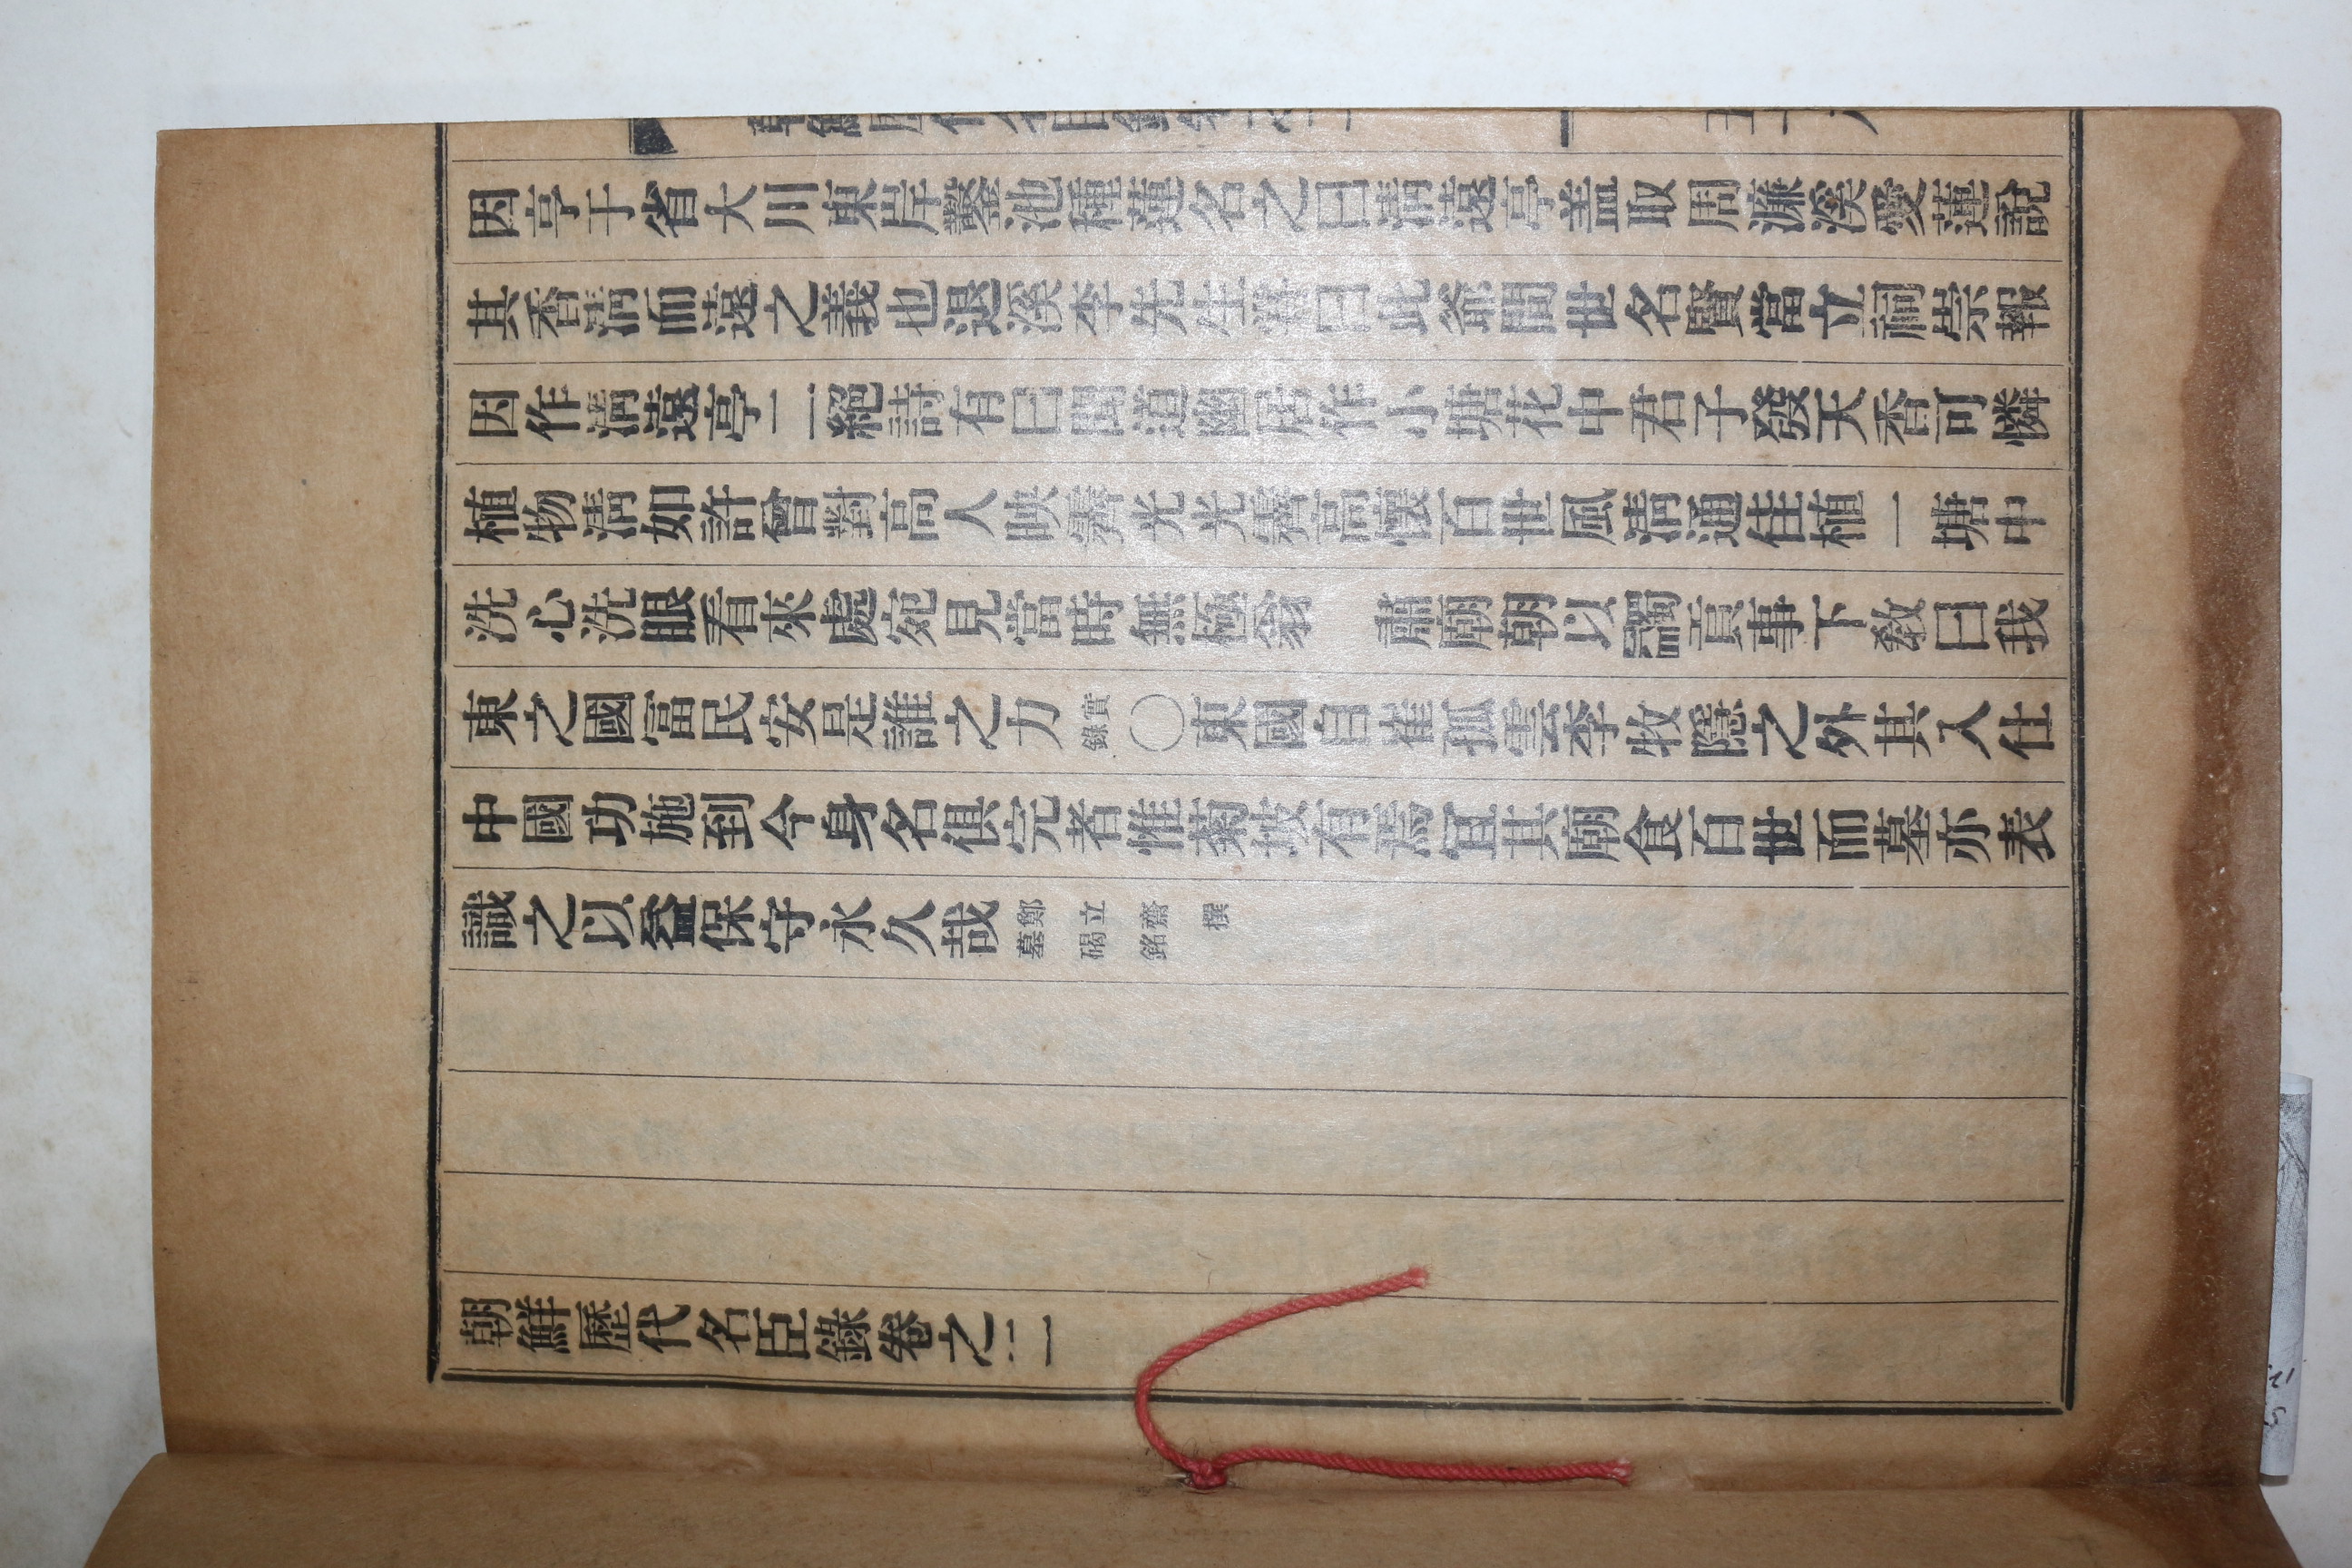 因亭于省大川東岸鑿池種蓮名之曰淸遠亭盖取周濂溪愛蓮說
其香淸而遠之義也退溪李先生曰此爺間世名賢當立祠崇報
因作淸遠亭二絕詩有曰聞道幽居作小塘花中君子發天香可憐
植物淸如許曾對高人映霽光光霽高懷百世風淸通佳植一塘中
洗心洗眼看來處宛見當時無極翁　肅廟朝以蠲貢事下敎曰我
東之國富民安是誰之力實錄〇東國自崔孤雲李牧隱之外其入仕
中國功施到今身名俱完者惟菊坡有焉宜其廟食百世而墓亦表
識之以益保守永久哉鄭立齋撰墓碣銘
朝鮮歷代名臣錄卷之二